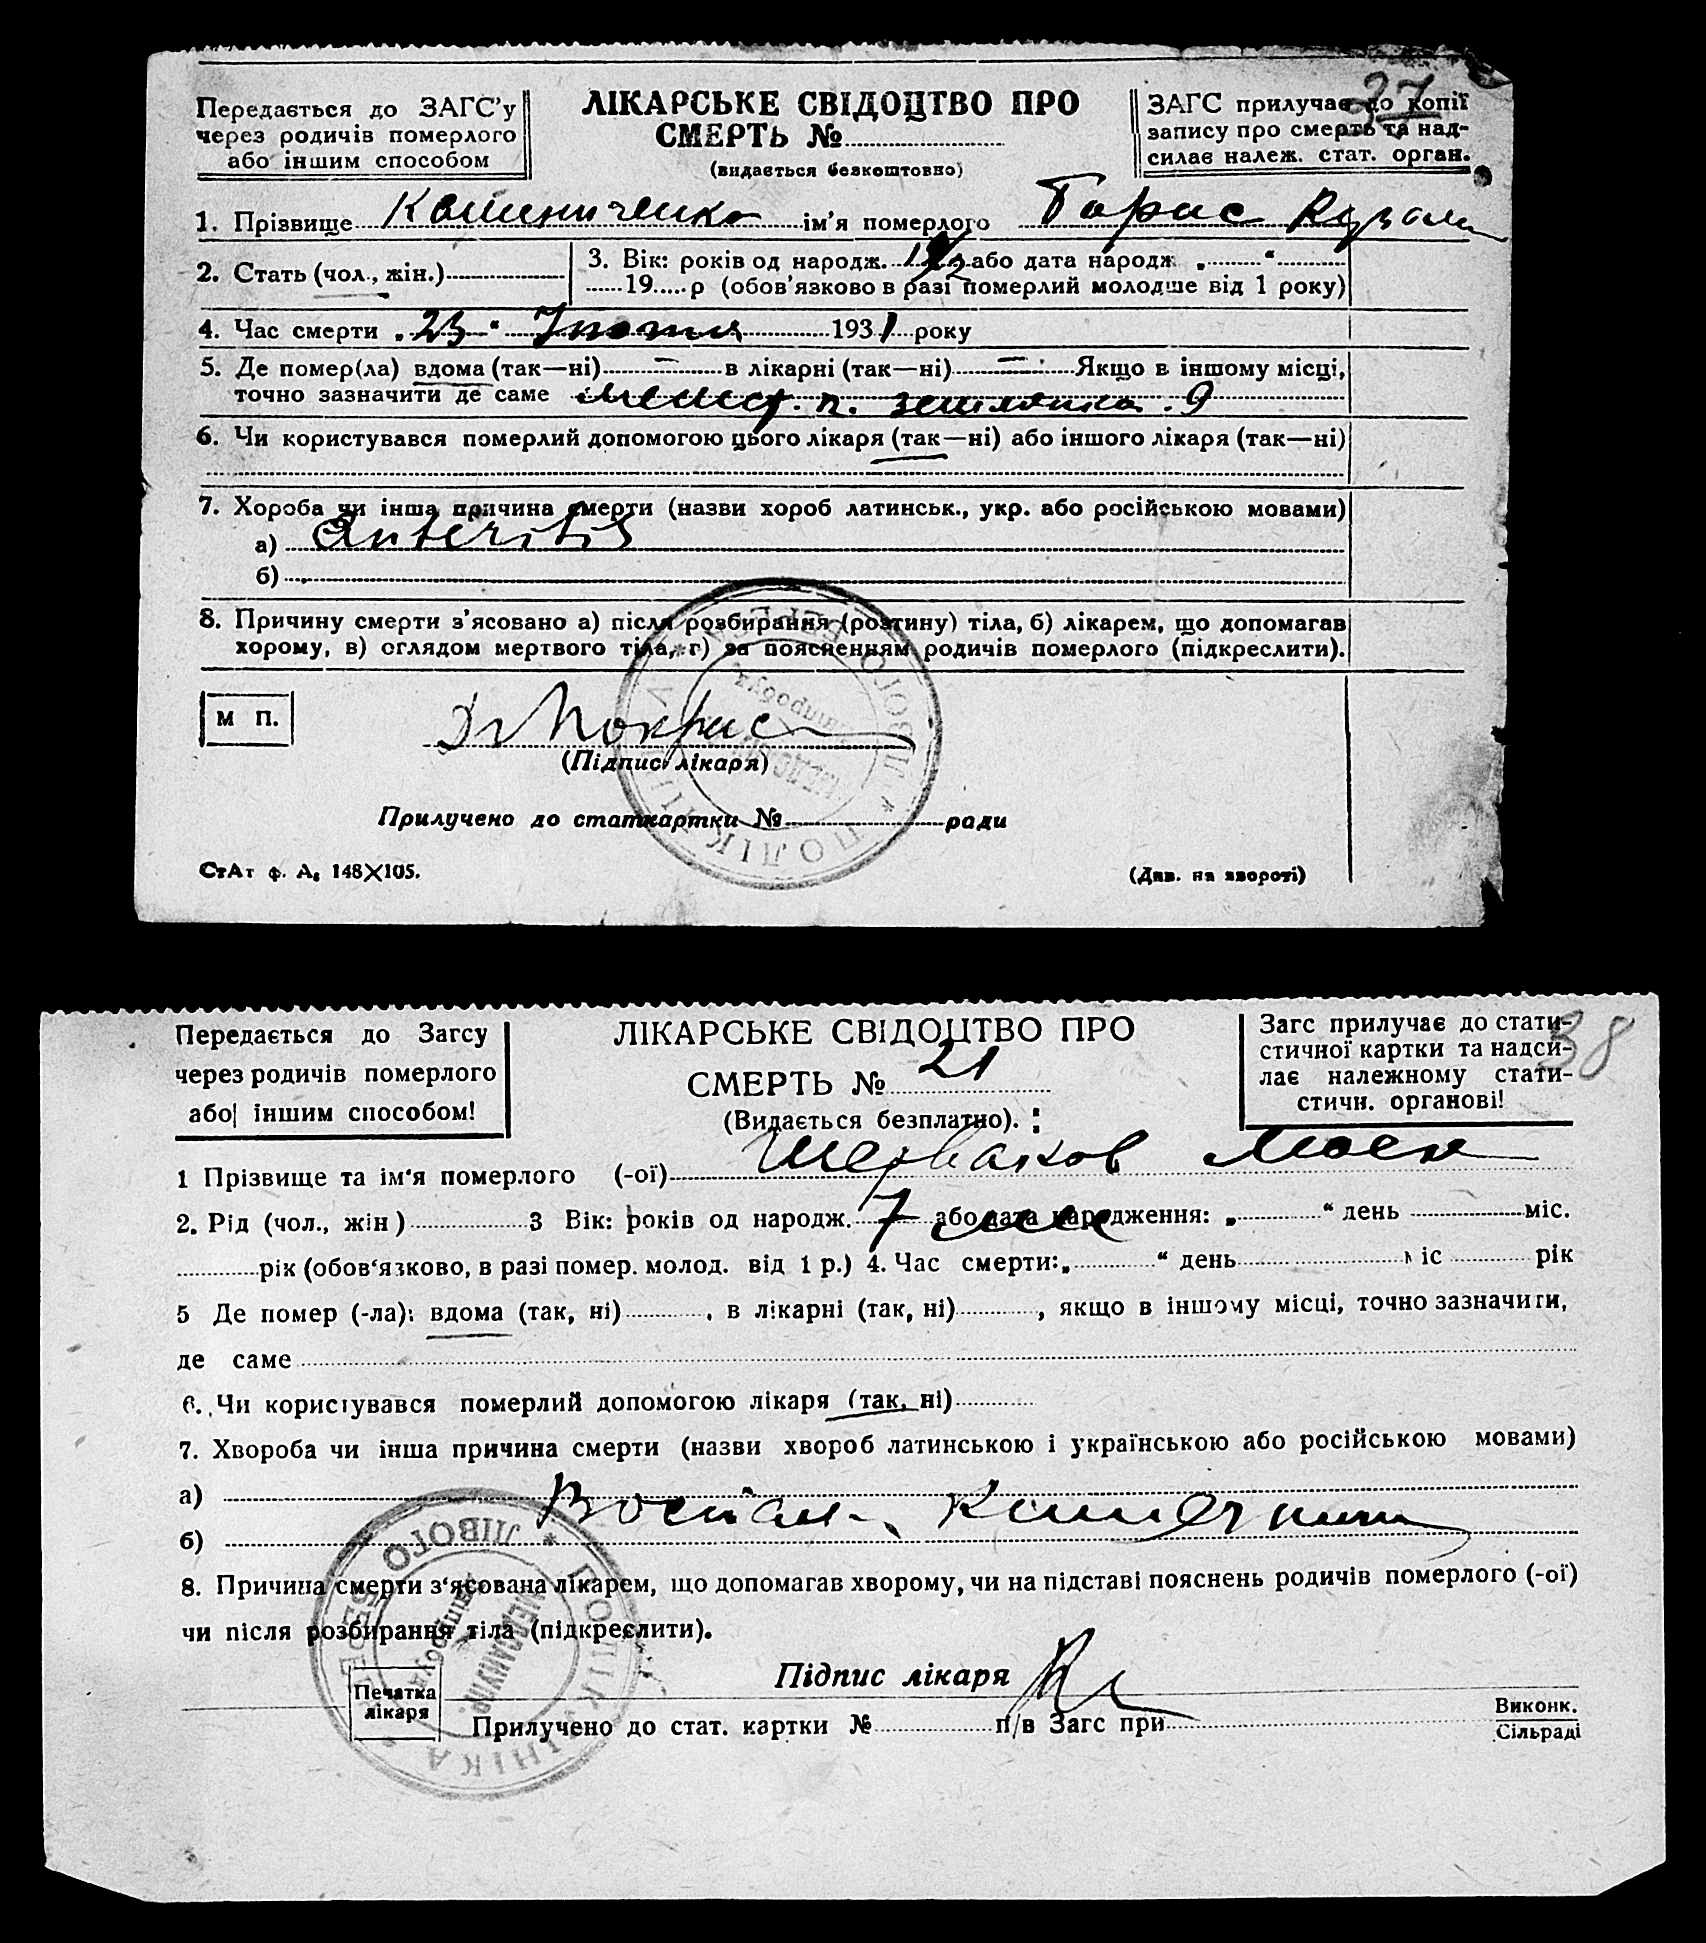 37
Передається до ЗАГС'у
через родичів померлого
або іншим способом
ЛІКАРСЬКЕ СВІДОЦТВО ПРО
СМЕРТЬ №
(видається безкоштовно)
ЗАГС прилучає до копії
запису про смерть та над-
силає належ. стат. орган.
1. Прізвище ім'я померлого Тарас
2. Стать (чол., жін.)
3. Вік: років од народж. або дата народж. „ “
19 р (обов'язково в разі померлий молодше від 1 року)
4. Час смерти „23“ 1931 року
5. Де помер(ла) вдома (так—ні) — в лікарні (так—ні) — Якщо в іншому місці,
точно зазначити де саме п. землянка 9
6. Чи користувався померлий допомогою цього лікаря (так—ні) або іншого лікаря (так—ні)
7. Хороба чи інша причина смерти (назви хороб латинськ., укр. або російською мовами)
а) Enteritis
б)
8. Причину смерти з'ясовано а) після розбирання (розтину) тіла, б) лікарем, що допомагав
хорому, в) оглядом мертвого тіла, г) за поясненням родичів померлого (підкреслити).
М П.
(Підпис лікаря)
Прилучено до статкартки № ради
СтАт ф. А₆ 148×105.
(Див. на звороті)
ПОЛІКЛІНІКА ЛІВОГО БЕРЕГА
38
Передається до Загсу
через родичів померлого
або іншим способом!
ЛІКАРСЬКЕ СВІДОЦТВО ПРО
СМЕРТЬ № 21
(Видається безплатно).
Загс прилучає до стати-
стичної картки та надси-
лає належному стати-
стичн. органові!
1 Прізвище та ім'я померлого (-ої)
2. Рід (чол., жін) 3 Вік: років од народж. 7 або дата народження: „ “ день міс.
рік (обов'язково, в разі помер. молод. від 1 р.) 4. Час смерти: „ “ день міс рік
5 Де помер (-ла): вдома (так, ні) , в лікарні (так, ні) , якщо в іншому місці, точно зазначити,
де саме
6. Чи користувався померлий допомогою лікаря (так, ні)
7. Хвороба чи інша причина смерти (назви хвороб латинською і українською або російською мовами)
а)
б)
8. Причина смерти з'ясована лікарем, що допомагав хворому, чи на підставі пояснень родичів померлого (-ої)
чи після розбирання тіла (підкреслити).
Підпис лікаря
Печатка
лікаря
Прилучено до стат. картки № п/в Загс при
Виконк.
Сільраді
ПОЛІКЛІНІКА ЛІВОГО БЕРЕГА